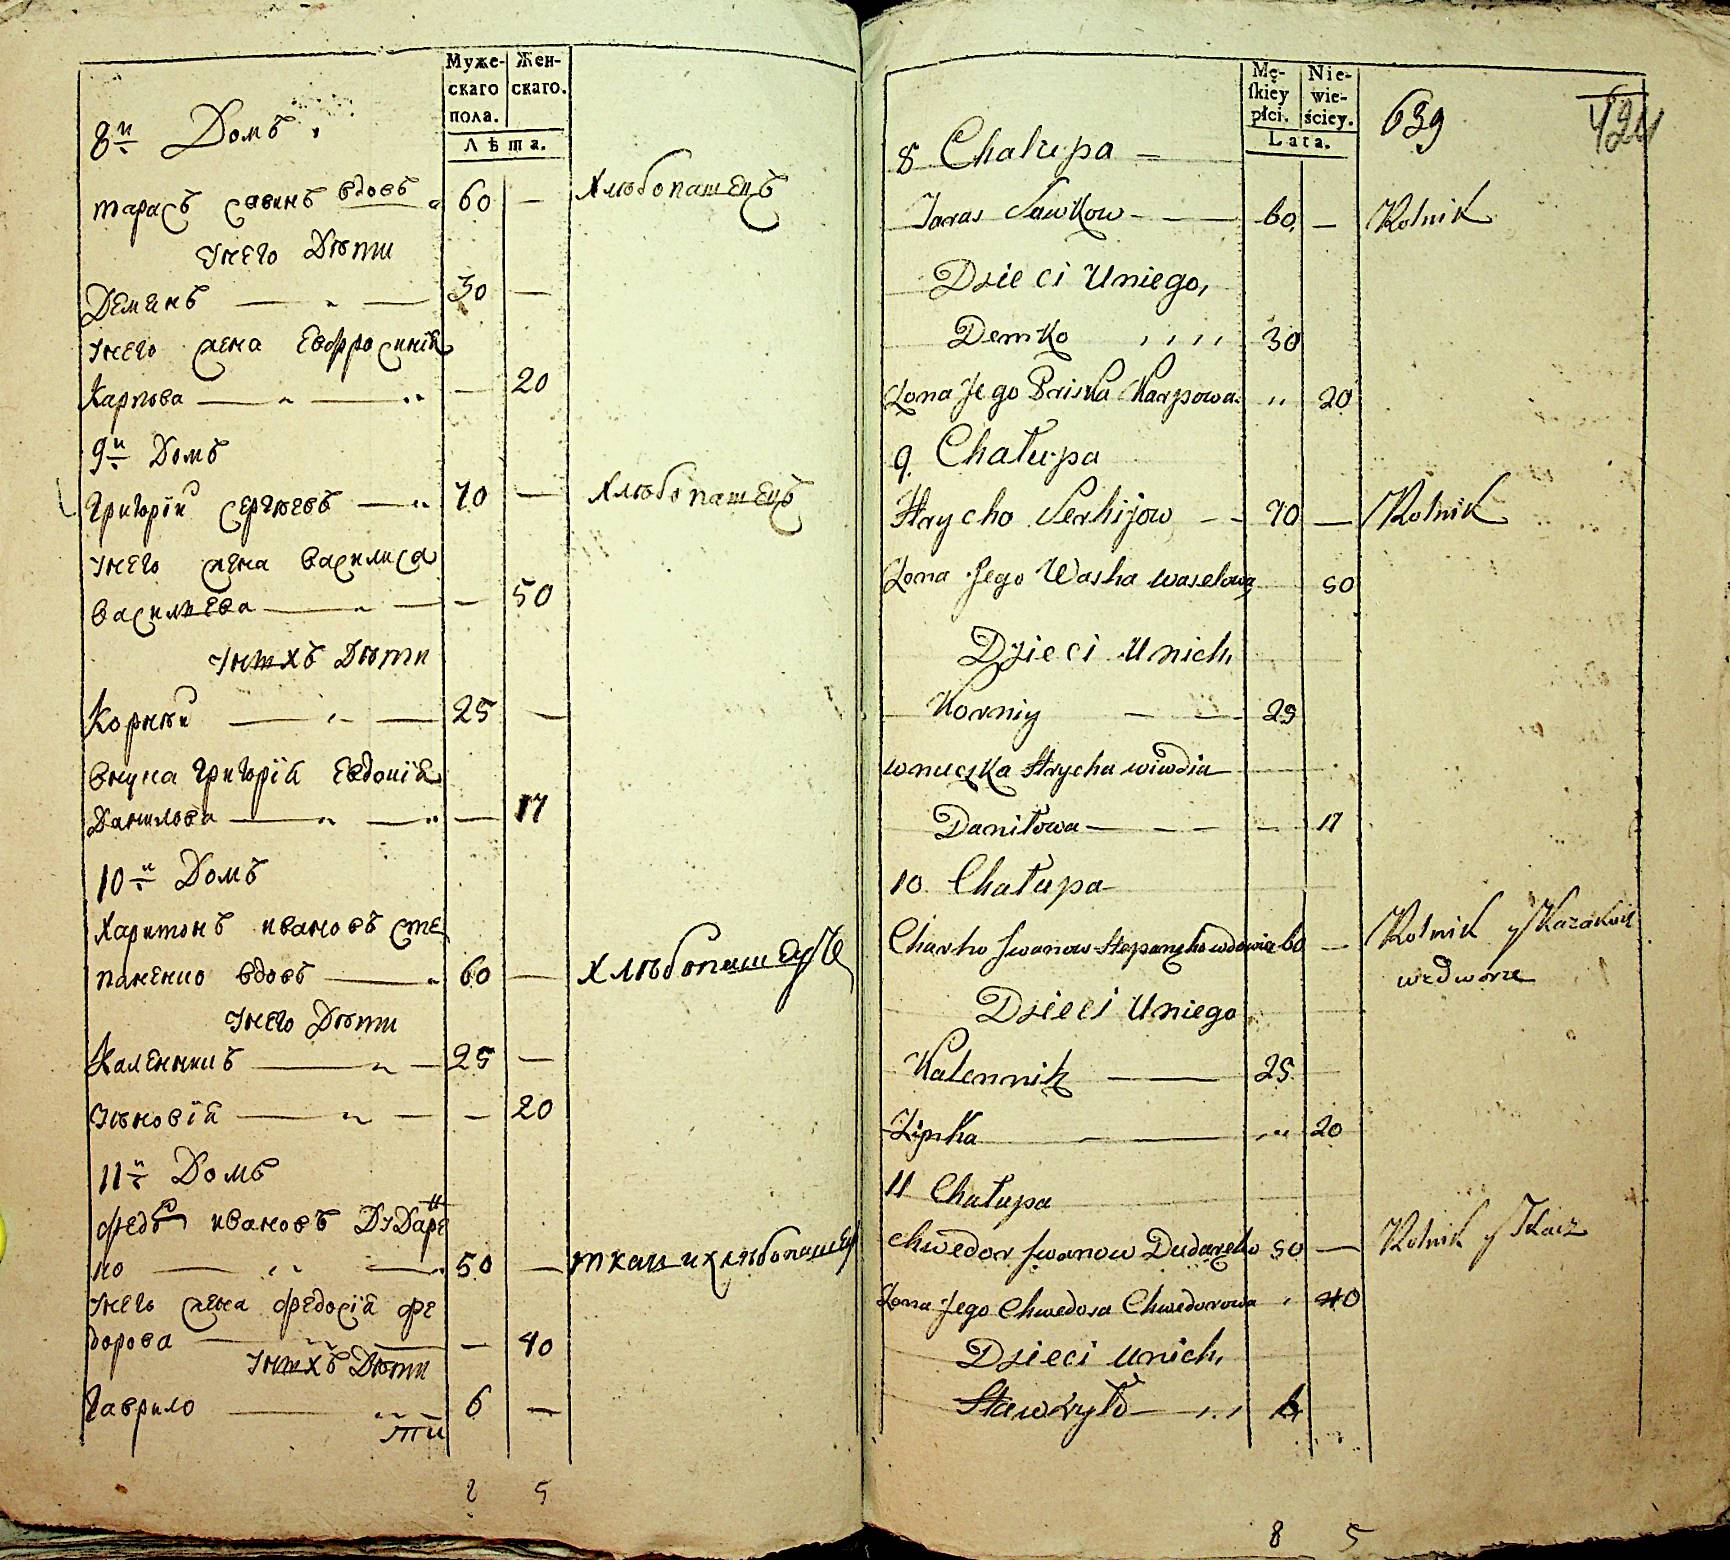 Муже-
скаго
пола.
Жен-
скаго.
Лѣта.
8й Домъ
Тарасъ Савинъ вдовъ 60 — хлѣбопашецъ
унего Дѣти
Деманъ — 30 —
унего жена Евфросинія
Карпова — 20
9й Домъ
Григорій Сергѣевъ — 70 — хлѣбопашецъ
унего жена Василиса
Василиева — 50
унихъ Дѣти
Корнѣй — 25 —
внука Григорія Евдокія
Данилова — 17
10й Домъ
Харитонъ Ивановъ Сте
паненко вдовъ — 60 —
унего Дѣти
Каленникъ — 25 —
Зѣновія — 20
11й Домъ
Федоръ Ивановъ Дударен
ко — 50 — ткач и хлѣбопашец
унего жена Федосія Фе
дорова — 40
унихъ Дѣти
Гаврило — 6 —
8 5
Mę-
ſkiey
płci.
Nie-
wie-
ściey.
Lata.
639
8 Chałupa —
Taras Sawkow — 60 — Rolnik
Dzieci Uniego,
Demko 30
Zona Jego Priska Karpowa 20
9 Chałupa
Hrycho Serhijow — 70 — Rolnik
Zona Jego Washa waselowa 50
Dzieci Unich,
Korniy — 25
wnuczka Hrycha wiwdia
Daniłowa — 17
10 Chałupa
Charko Jwanow Stepanenko wdowiec 60 — Rolnik y
wedworze
Dzieci Uniego
Kalennik — 25
Zinka — 20
11 Chałupa
Chwedor Jwanow Dudarenko 50 — Rolnik y Tkacz
Zona Jego Chwedosa Chwedorowa 40
Dzieci Unich,
Hawryło — 6
8 5